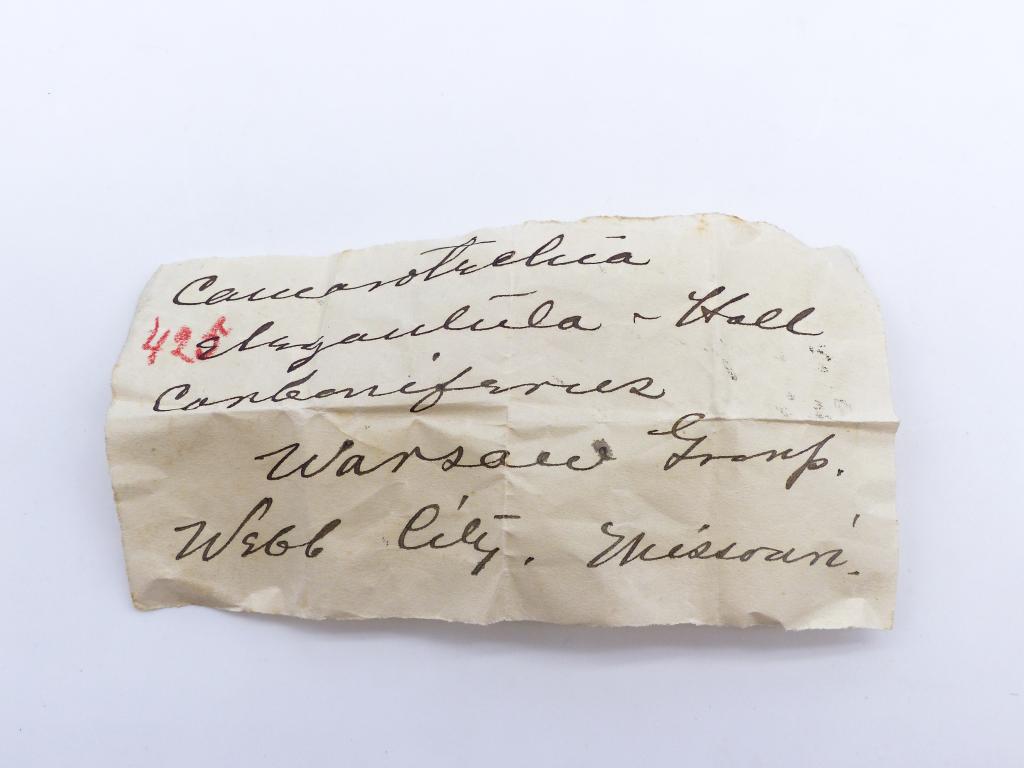 Camarotechia
425 elegantula - Hall
Carboniferus
Warsaw Group.
Webb City. Missouri.